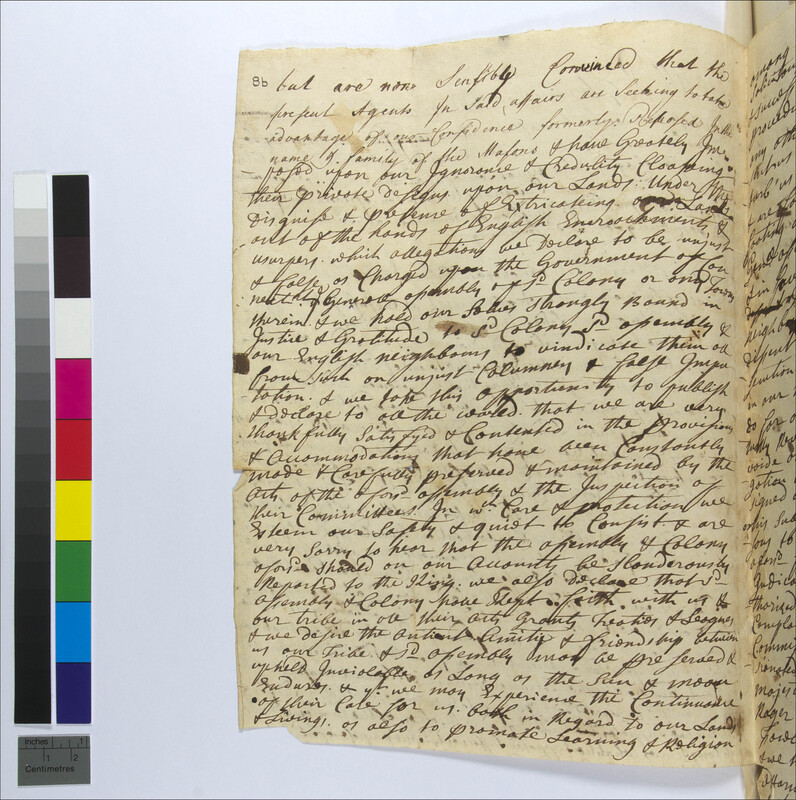 8b
but are now Sensibly Convinced that the
present Agents In Said affairs are Seeking to take
advantage of our Confidence formerly Reposed In the
name & family of the Masons & have Greately Im
posed upon our Ignorance & Credulity Cloaking
their private designs upon our Lands Under the
Disguise & pretence of Extricating our Lands
out of the hands of English Encroachments &
usurpers. which allegations we Declare to be unjust
& false as Charged upon the Government of Con
necticut & General assembly of sd Colony or any Town
therein. & we hold our Selves Strongly Bound in
Justice & Gratitude to sd Colony sd assembly &
our English neighbours to vindicate them all
from Such an unjust Columney & false Impu
tation. & we take this opportunity to publish
& declare to all the world that we are very
thankfully Satisfyed & Contented in the provisions
& Accommodations that have been Constantly
made & Carefully preserved & maintained by the
Acts of the aforsd assembly & the Inspection of
their Committees. In wch Care & protection we
Esteem our Safety & quiet to Consist & are
very Sorry to hear that the assembly & Colony
aforsd should on our Account be Slanderously
Reported to the King. we also declare that sd
assembly & Colony have kept faith with us &
our tribe in all their Acts Grants treaties & Leagues
& we desire the Antient Amitie & friendship between
us our Tribe & sd assembly may be preserved &
upheld Inviolable as Long as the Sun & moon
Endures. & yt we may Experience the Continuance
of their Care for us. both in Regard to our Lands
& Living. as also to promote Learning & Religion
among
proceedi
any oth
in our
so for
signed
Compla
Commi
majes
Roger
& we
Inches 1
1 2
Centimetres